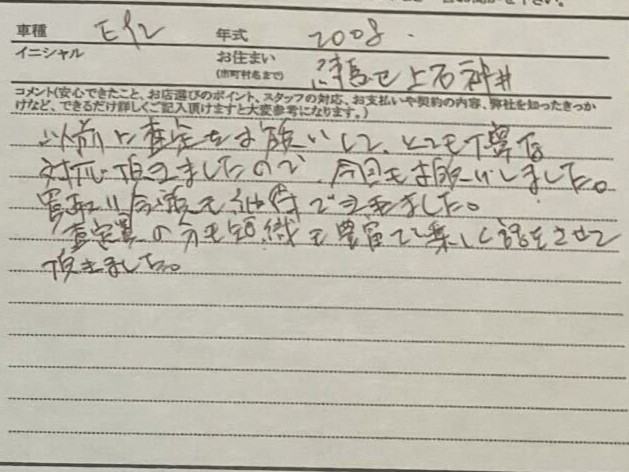 車種 年式 2008.
イニシャル お住まい 練馬区上石神井
(市町村名まで)
コメント(安心できたこと、お店選びのポイント、スタッフの対応、お支払いや契約の内容、弊社を知ったきっか
けなど、できるだけ詳しくご記入頂けますと大変参考になります。)
以前に査定をお願いして、とても丁寧な
対応頂きましたので、今回もお願いしました。
買取り金額も納得できました。
査定員の方も知識も豊富で楽しく話をさせて
頂きました。